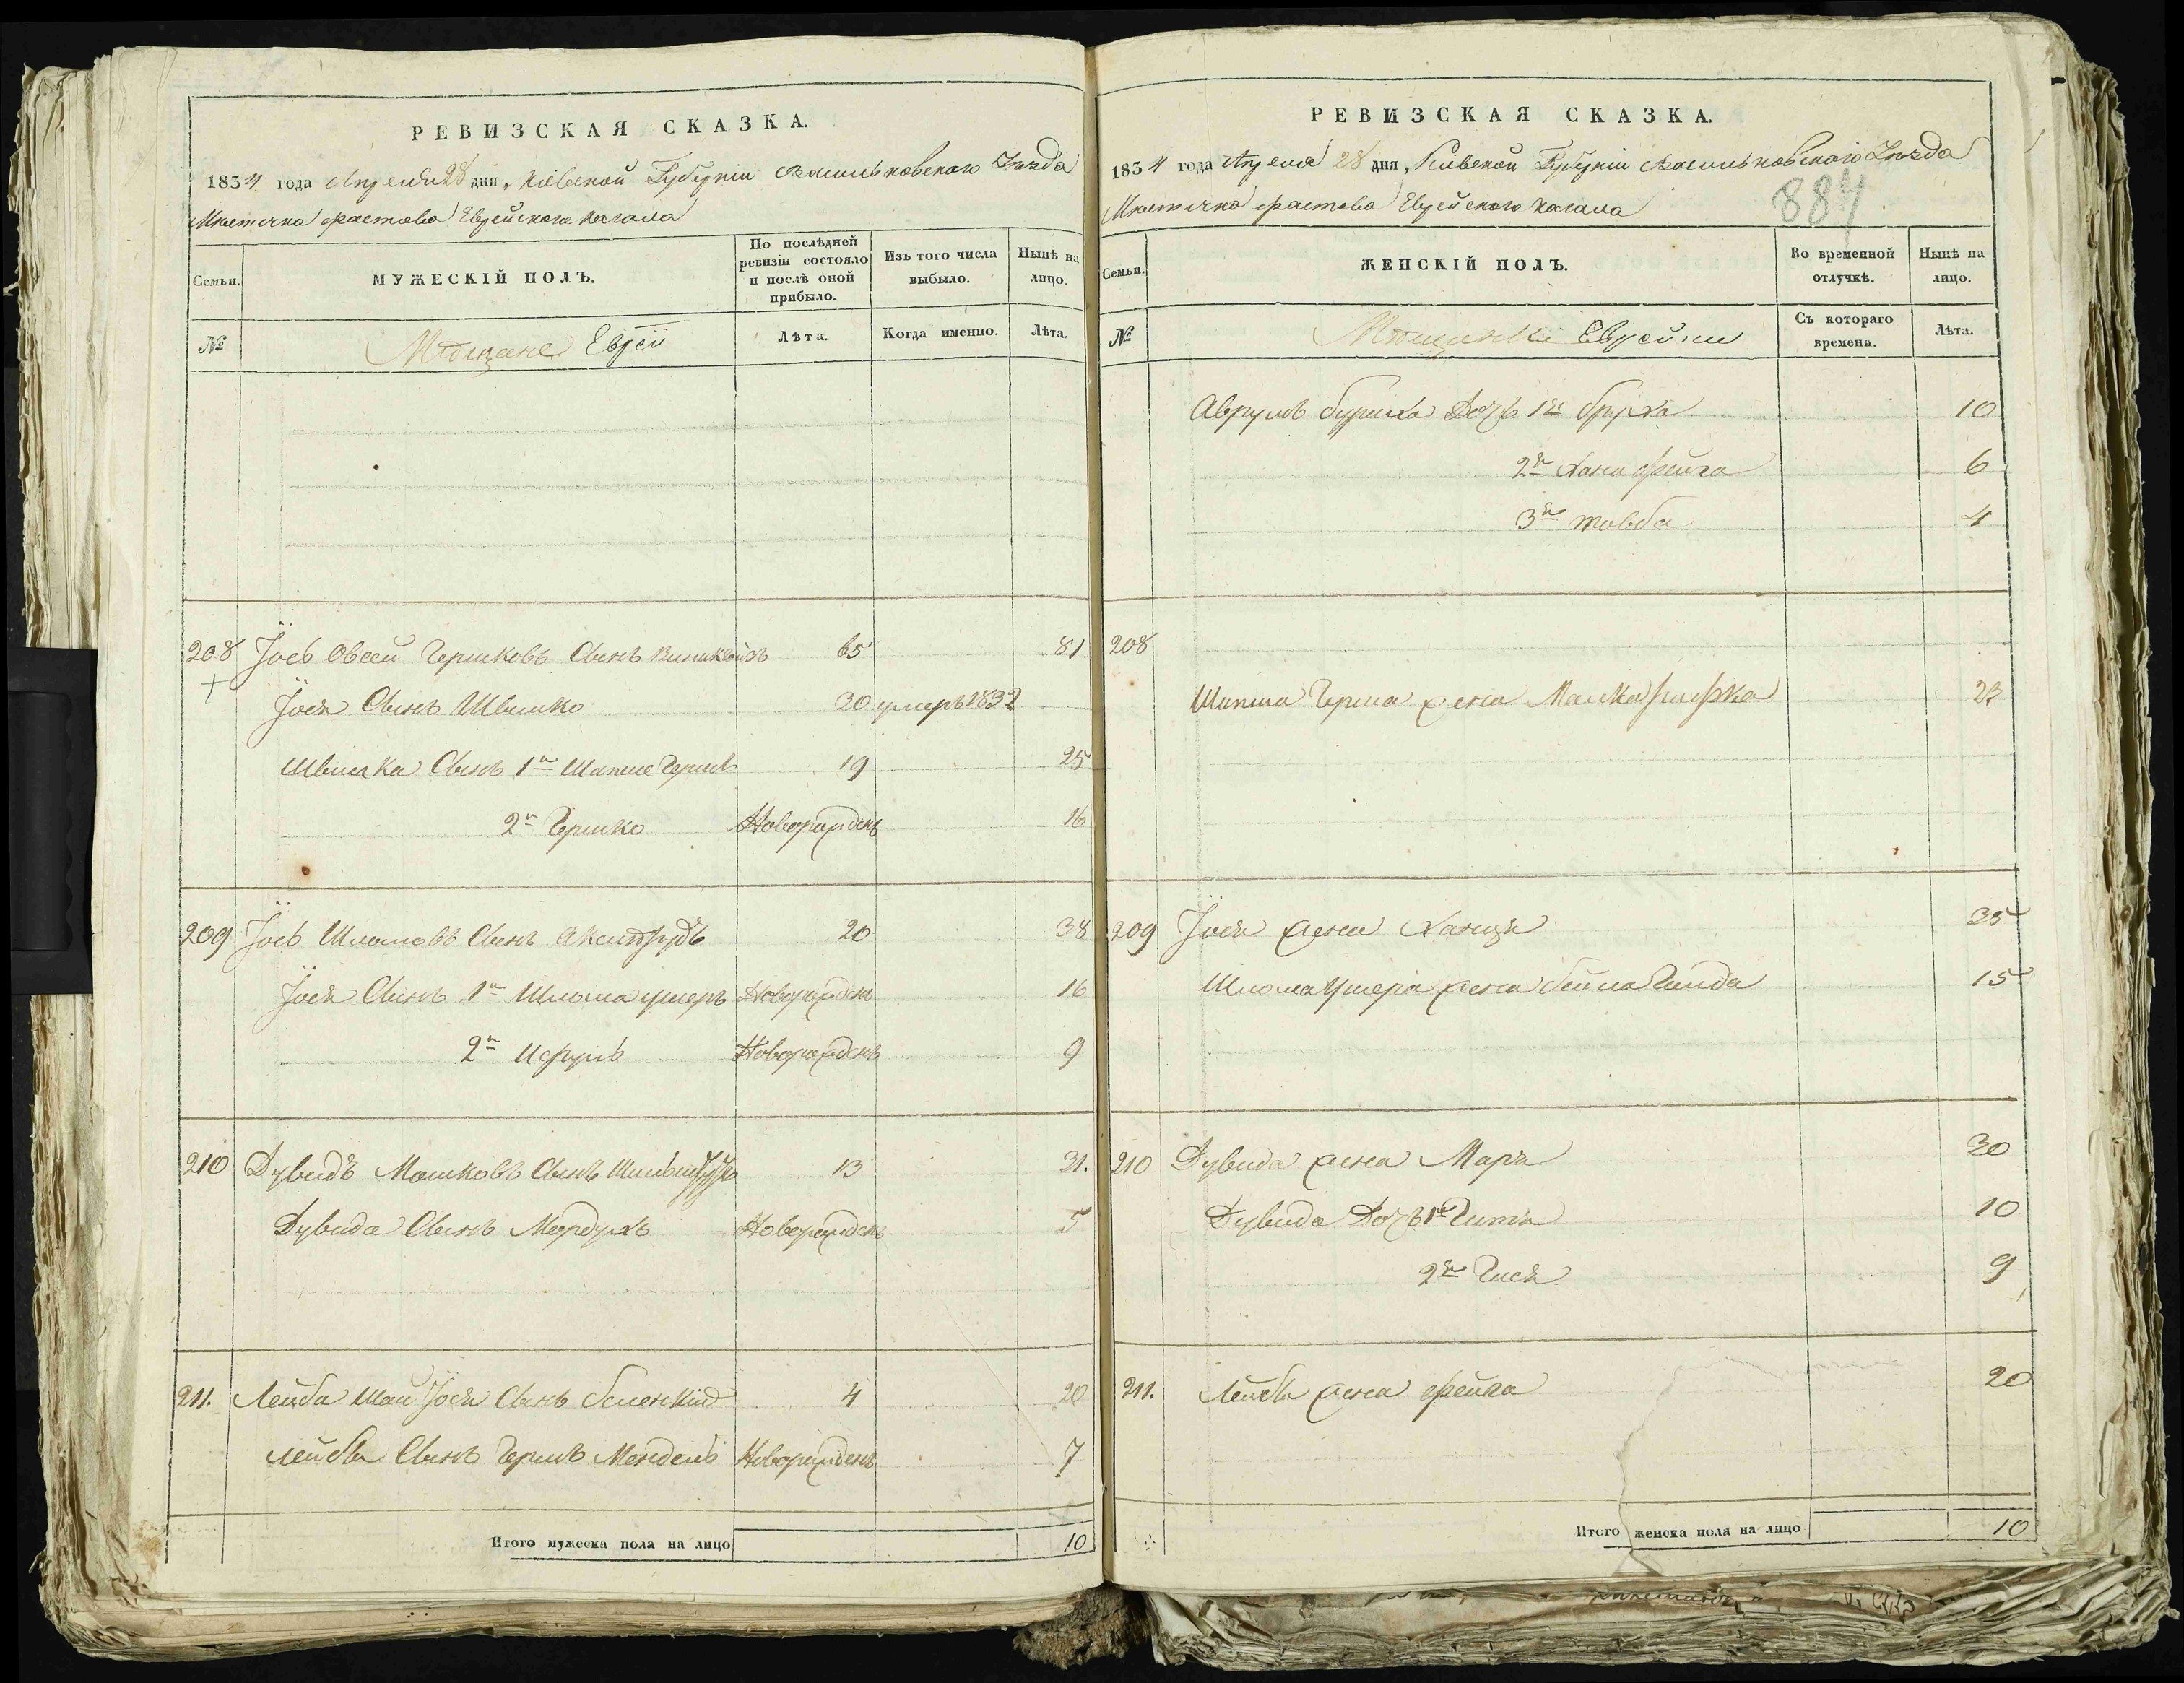 РЕВИЗСКАЯ СКАЗКА.
1834 года Апреля 28 дня, Кіевской Губерніи Васильковскаго Уѣзда
Мѣстечка Фастова Еврейскаго Кагала
Семьи.
МУЖЕСКІЙ ПОЛЪ.
По послѣдней ревизіи состояло и послѣ оной прибыло.
Изъ того числа выбыло.
Нынѣ на лицо.
№
Мѣщане Евреи
Лѣта.
Когда именно.
Лѣта.
208 Іось Овсей Гершковъ Сынъ 65 81
Іося Сынъ Швишко 30 умеръ 1832
Швишка Сынъ 1й Шапше Гершъ 19 25
2й Гершко Новорожденъ 16
209 Іось Шломовъ Сынъ 20 38
Іося Сынъ 1й Шлома Ушеръ Новорожденъ 16
2й Исрулъ Новорожденъ 9
210 Дувидъ Мошковъ Сынъ 13 31.
Дувида Сынъ Мордухъ Новорожденъ 5
211. Лейба Шая Іося Сынъ Беленкій 4 20
Лейбы Сынъ Гершъ Мендель Новорожденъ 7
Итого мужеска пола на лицо 10
РЕВИЗСКАЯ СКАЗКА.
1834 года Апреля 28 дня, Кіевской Губерніи Васильковскаго Уѣзда
Мѣстечка Фастова Еврейскаго Кагала
884
Семьи.
ЖЕНСКІЙ ПОЛЪ.
Во временной отлучкѣ.
Нынѣ на лицо.
№
Мѣщанки Еврейки
Съ котораго времени.
Лѣта.
Аврумъ Дочь 1я Бруха 10
2я Хана Фейга 6
3я Товба 4
208
Шапша Герша жена Малка Рифка
209 Іося жена Ханця 35
Шлома Ушера жена Бейла Гинда 15
210 Дувида жена Маря 30
Дувида Дочь 1я Гитя 10
2я Гися 9
211. Лейбы жена Фейга 20
Итого женска пола на лицо 10